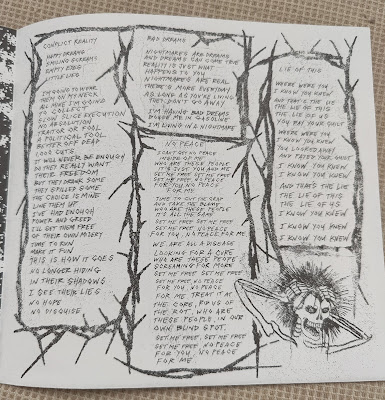 CONFLICT REALITY
HAPPY DREAMS
SMILING SCREAMS
EMPTY EYES
LITTLE LIES
I'M GOING TO WEAR
THEM ON MY NECK
ALL MINE I'M GOING
TO COLLECT
SLOW SLICE EXECUTION
NO ABSOLUTION
TRAITOR OR FOOL
A POLITICAL FOOL
BETTER OFF DEAD
CODE CUTS
IT WILL NEVER BE ENOUGH
DO THEY REALLY WANT
THEIR FREEDOM
BUT THEY DRANK SOME
THEY SPILLED SOME
THE CHOICE IS MINE
LINE THEM UP
I'VE HAD ENOUGH
POWER AND GREED
I'LL SET THEM FREE
OF THEIR OWN MISERY
TIME TO RUN
MAKE IT FUN
THIS IS HOW IT GOES
NO LONGER HIDING
IN THEIR SHADOWS
I SEE THEIR LIES...
NO HOPE
NO DISGUISE
BAD DREAMS
NIGHTMARE'S ARE DREAMS
AND DREAMS CAN COME TRUE
REALITY IS JUST WHAT
HAPPENS TO YOU
NIGHTMARES ARE REAL
THERE'S MORE EVERYDAY
AS LONG AS YOU'RE LIVING
THEY DON'T GO AWAY
I'M HAVING BAD DREAMS
DOUSE ME IN GASOLINE
I'M LIVING IN A NIGHTMARE
NO PEACE
I CAN'T GET NO PEACE
INSIDE OF ME
WHO ARE THESE PEOPLE
IT'S JUST YOU AND ME
SET ME FREE SET ME FREE
SET ME FREE NO PEACE
FOR YOU, NO PEACE
FOR ME
TIME TO CUT THE CRAP
AND TAKE THE BLAME
WHO ARE THESE PEOPLE
IT'S ALL THE SAME
SET ME FREE SET ME FREE
SET ME FREE, NO PEACE
FOR YOU, NO PEACE FOR ME
WE ARE ALL A DISEASE
LOOKING FOR A CURE
WHO ARE THESE PEOPLE
SCREAMING FOR MORE
SET ME FREE SET ME FREE
SET ME FREE, NO PEACE
FOR YOU, NO PEACE
FOR ME TREAT IT AT
THE CORE, RID US OF
THE ROT, WHO ARE
THESE PEOPLE, IN OUR
OWN BLIND SPOT.
SET ME FREE, SET ME FREE
SET ME FREE NO PEACE
FOR YOU, NO PEACE
FOR ME
LIE OF THIS
WHERE WERE YOU
I KNOW YOU KNEW
AND THAT'S THE LIE
THE LIE OF THIS
THE LIE OF US
YOU PAY YOUR GUILT
WHERE WERE YOU
I KNOW YOU KNEW
YOU DISREGARD
AND FAILED YOUR
I KNOW YOU KNEW
I KNOW YOU KNEW
AND THAT'S THE LIE
THE LIE OF THIS
THE LIE OF US
I KNOW YOU KNEW
I KNOW YOU KNEW
I KNOW YOU KNEW